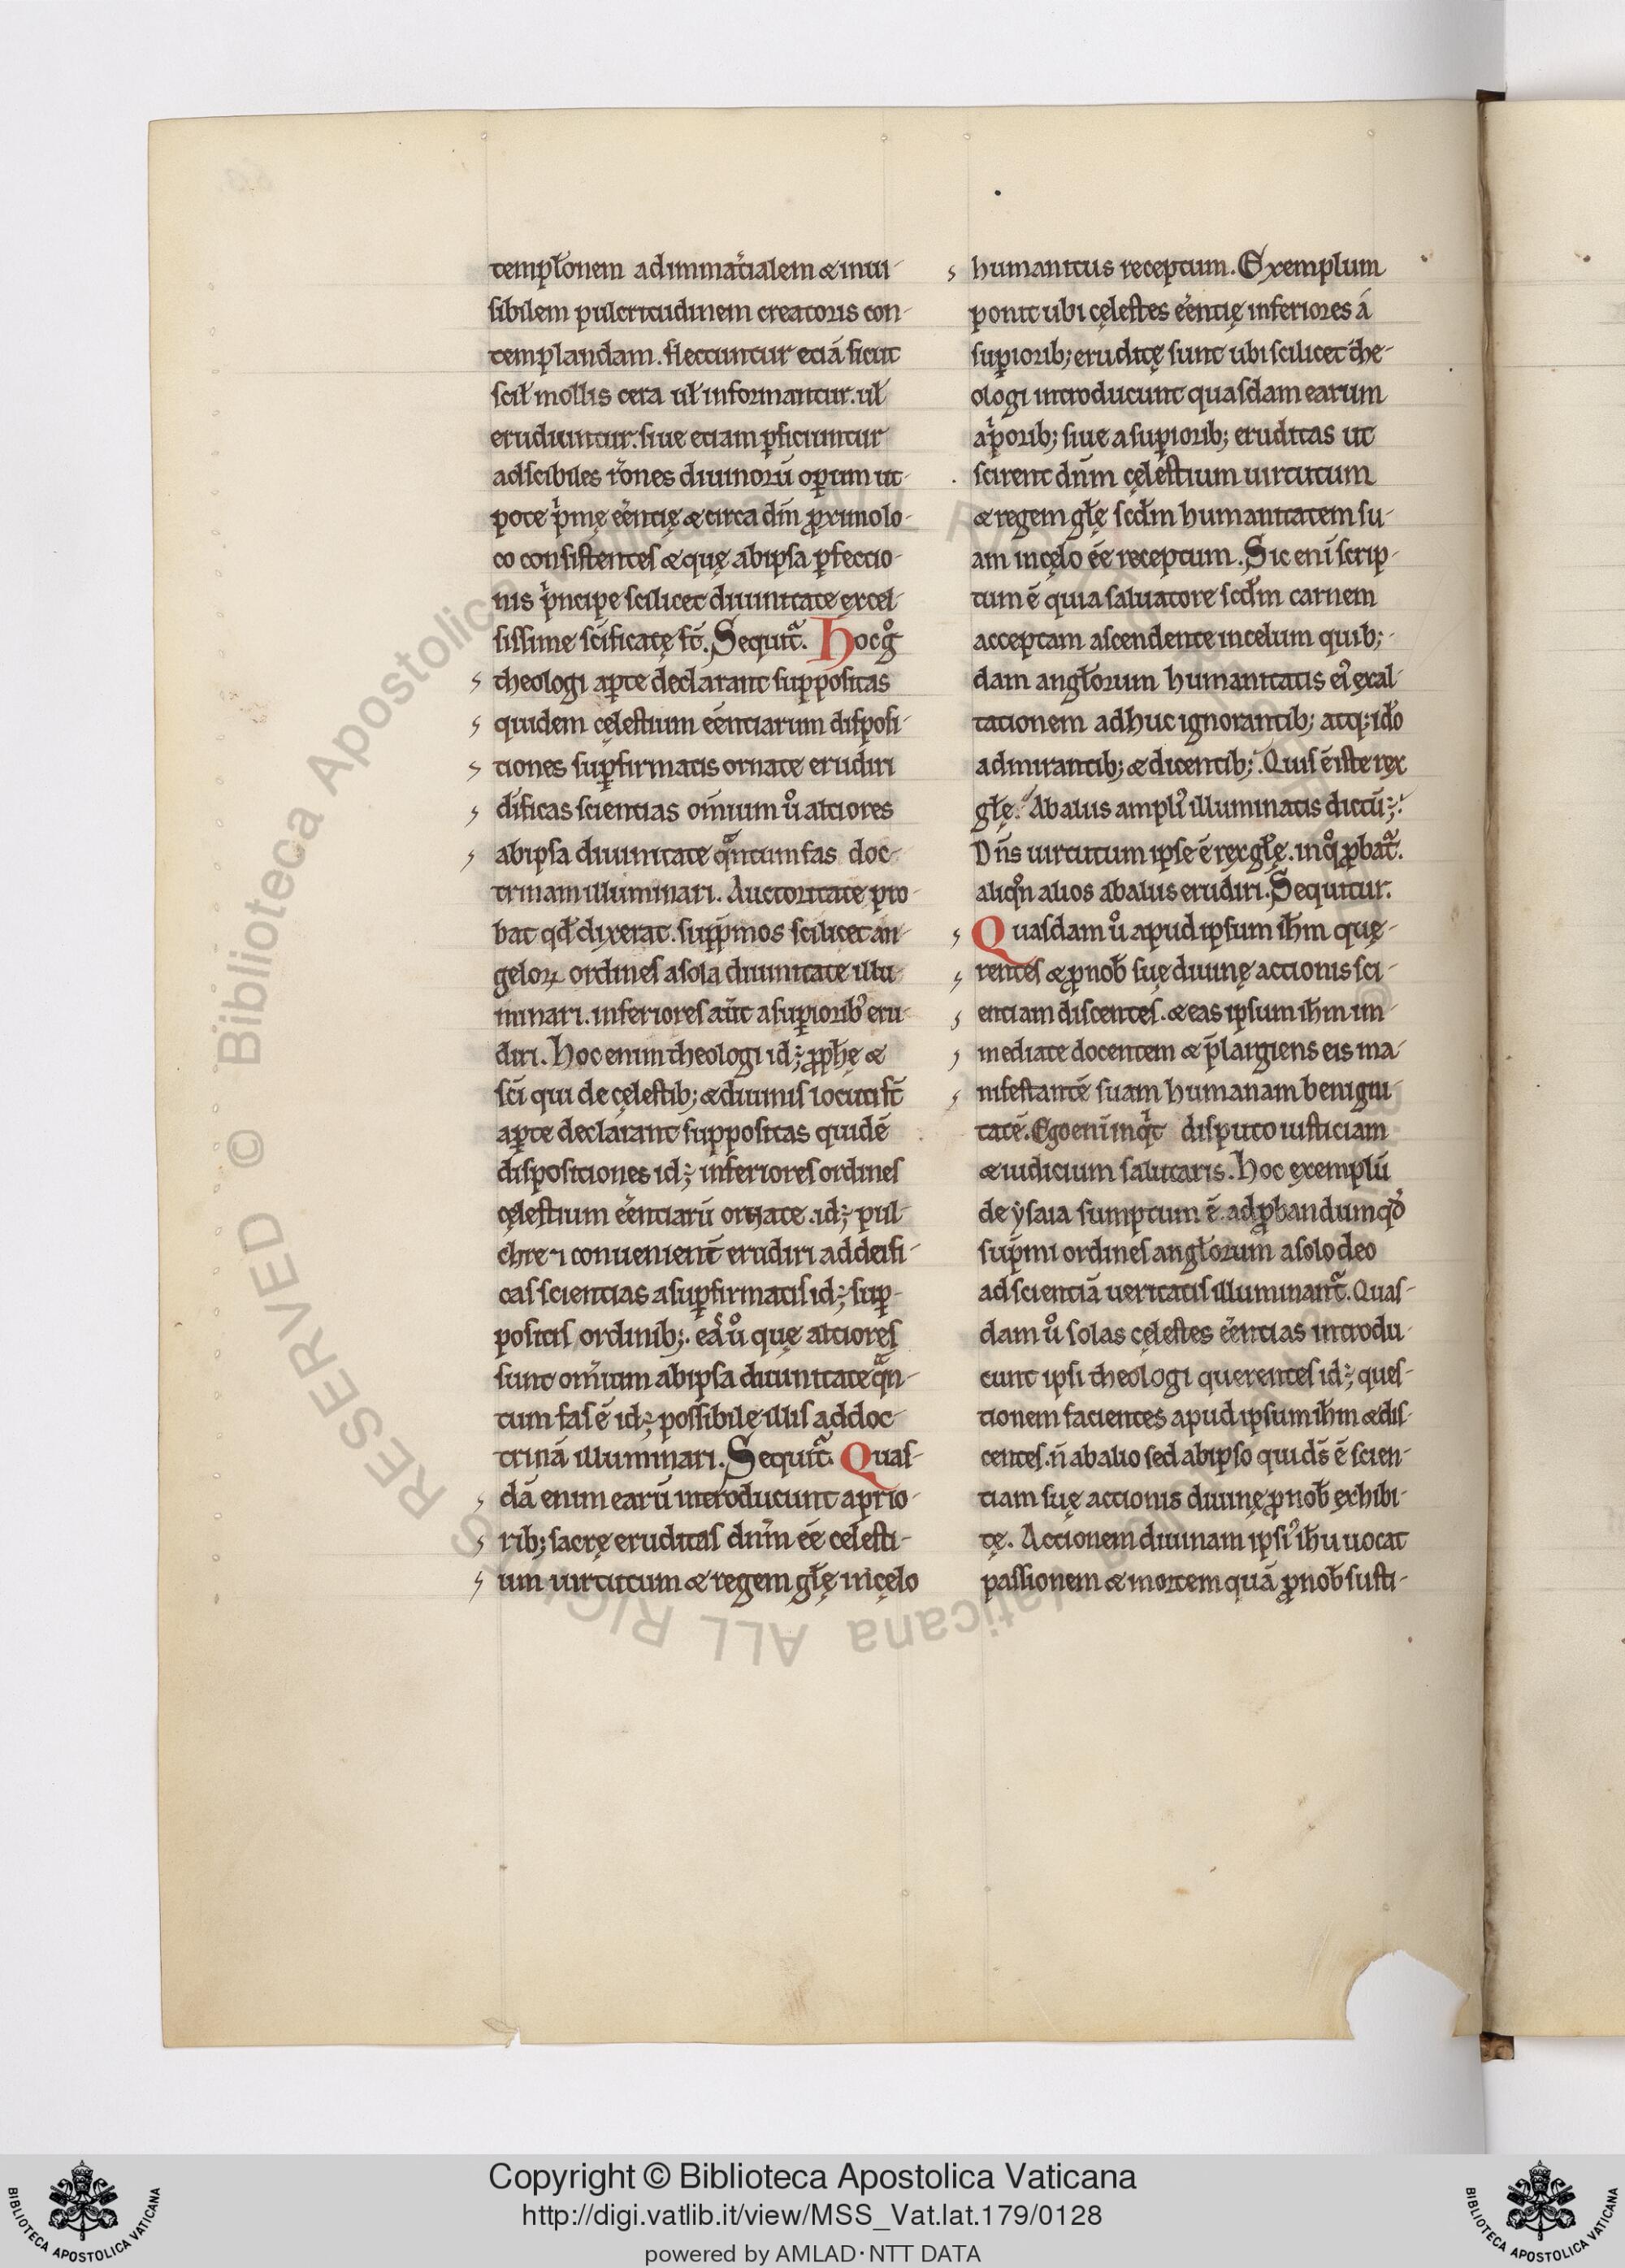 templ̄onem ad inmat̄ialem ⁊ inui-
sibilem pulcritudinem creatoris con-
templandam. flectuntur etiā sicut
scil̄ mollis cera ul̄ informantur. ul̄
erudiuntur. siue etiam ꝑficiuntur
ad scibiles r̄ones diuinorū oꝑum ut-
pote p̄mę eēntię ⁊ circa dm̄ ꝓximo lo-
co consistentes ⁊ quę ab ipsa ꝑfectio-
nis p̄ncipe scilicet diuinitate excel-
sissime sc̄ificatę st̄. Sequit̄. Hoc gͦ
theologi aꝑte declarant suppositas
quidem cęlestium eēntiarum disposi-
tiones suꝑfirmatis ornate erudiri
dīficas scientias om̄ium uͦ altiores
ab ipsa diuinitate qᵃntum fas doc-
trinam illuminari. Auctoritate pro-
bat qd̄ dixerat. sup̄mos scilicet an-
geloꝝ ordines a sola diuinitate illu-
minari. inferiores aūt a suꝑiorib᾽ eru-
diri. Hoc enim theologi id; ꝓph̄ę ⁊
sc̄i qui de cęlestib; ⁊ diuinis locuti st̄
aꝑte declarant suppositas quidē
dispositiones id; inferiores ordines
cęlestium eēntiarū ornate. id; pul-
chre ⁊ conuenient̄ erudiri ad deifi-
cas scientias a suꝑfirmatis id; suꝑ-
positis ordinib;. eaꝝ uͦ quę altiores
sunt om̄ium ab ipsa diuinitate qᵃn-
tum fas ē id; possibile illis ad doc-
trinā illuminari. Sequit̄. Quas-
dā enim earū introducunt a prio-
rib; sacrę eruditas dnm̄ eē cęlesti-
um uirtutum ⁊ regem gl̄ę in cęlo
humanitus receptum. Exemplum
ponit ubi cęlestes eēntię inferiores a
suꝑiorib; eruditę sunt ubi scilicet the-
ologi introducunt quasdam earum
a p̄orib; siue a suꝑiorib; eruditas ut
scirent dn̄m cęlestium uirtutum
⁊ regem gl̄ę scd̄m humanitatem su-
am in cęlo eē receptum. Sic enī scrip-
tum ē quia saluatore scd̄m carnem
acceptam ascendente in celum quib;-
dam angl̄orum humanitatis ei᾽ exal-
tationem adhuc ignorantib; atq; ido
admirantib; ⁊ dicentib;. Quis ē iste rex
gl̄ę. Ab aliis ampli᾽ illuminatis dictū;.
Dn̄s uirtutum ipse ē rex gl̄ę. in qͦ ꝓbat̄.
aliqn̄ alios ab aliis erudiri. Sequitur.
Quasdam uͦ apud ipsum ih̄m quę-
rentes ⁊ ꝓ nob̄ suę diuinę actionis sci-
entiam discentes. ⁊ eas ipsum ih̄m im-
mediate docentem ⁊ p̄largiens eis ma-
nifestantē suam humanam benigni-
tatē. Ego enī inqⁱt disputo iusticiam
⁊ iudicium salutaris. Hoc exemplū
de ẏsaia sumptum ē ad ꝓbandum qd̄
sup̄mi ordines angl̄orum a solo deo
ad scientiā ueritatis illuminant̄. Quas-
dam uͦ solas cęlestes eēntias introdu-
cunt ipsi theologi querentes id; ques-
tionem facientes apud ipsum ih̄m ⁊ dis-
centes. n̄ ab alio sed ab ipso qui ds̄ ē scien-
tiam suę actionis diuinę ꝓ nob̄ exhibi-
tę. Actionem diuinam ipsi᾽ ih̄u uocat
passionem ⁊ mortem quā ꝓ nob̄ susti-
Copyright © Biblioteca Apostolica Vaticana
http://digi.vatlib.it/view/MSS_Vat.lat.179/0128
powered by AMLAD·NTT DATA